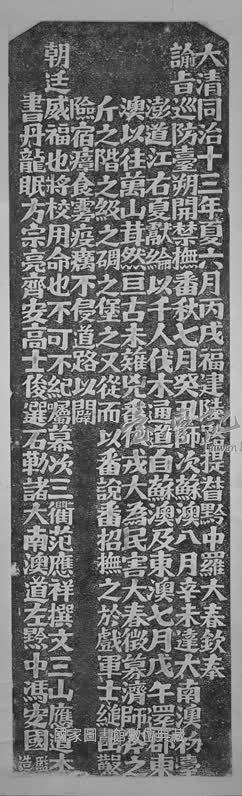 大清同治十三年夏六月丙戌福建陸路提督黔中羅大春欽奉
諭旨巡防臺朔開禁撫番秋七月癸丑師次蘇澳八月辛未達大南澳初臺
澎道江右夏獻綸以千人伐木通道自蘇澳及東澳七月戊午還郡東
澳以往萬山茸然亘古未薙兇番伺戎大為民害大春徵募濟師斧之
斤之階之級之碉之堡之又從而以番說番招撫之於戲軍士縋幽鑿
險宿瘴食雾疫癘不侵道路以闢
朝廷威福也將校用命也不可不紀囑幕次三衢范應祥撰文三山應道本
書丹龍眠方宗亮齊安高士俊選石勒諸大南澳道左黔中馮安國監造
國家圖書館數位典藏